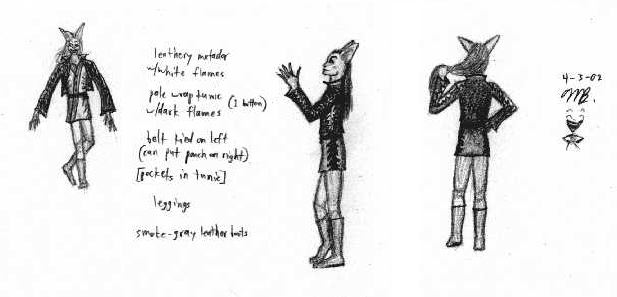 leathery matador
w/white flames
pale wrap tunic (1 button)
w/dark flames
belt tied on left
(can put pouch on right)
[pockets in tunic]
leggings
smoke-gray leather boots
4-3-02
MB.